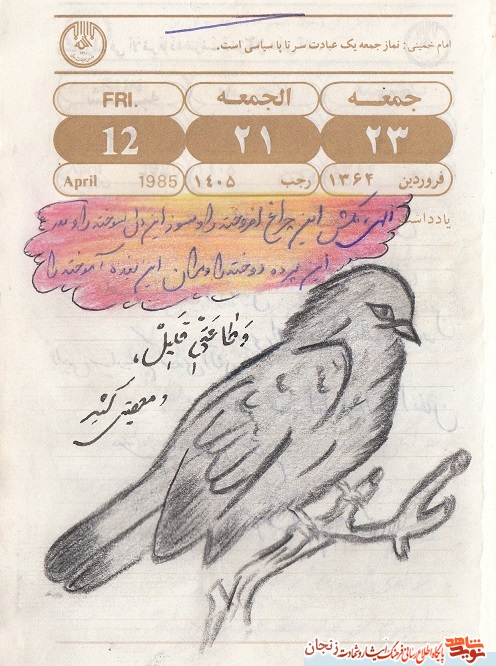 امام خمینی: نماز جمعه یک عبادت سر تا پا سیاسی است.
جمعــه الجمعه FRI.
۲۳ ۲۱ 12
فروردین ۱۳۶۴ رجب ۱۴۰۵ 1985 April
یادداشت
الهی، مکش این چراغ افروخته را و مسوز این دل سوخته را و مدر
این پرده دوخته را و مران این بنده آموخته را
وَ طاعَتي قَلیلٌ،
و معصیتی کثیر
نوید شاهد
پایگاه اطلاع رسانی فرهنگ ایثار و شهادت زنجان